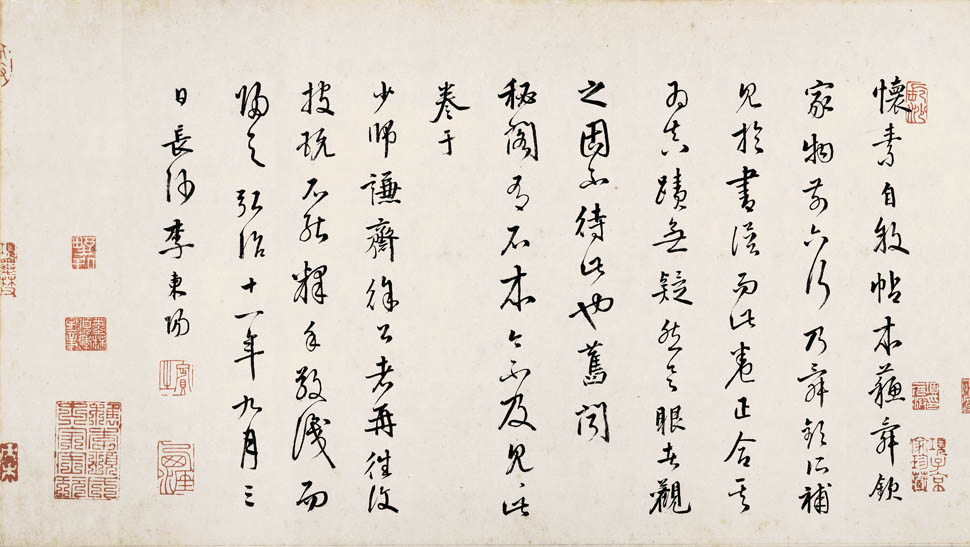 懷素自敘帖本蘇舜欽
家物前六行乃舜欽所補
見於書譜而此卷正合其
為真蹟無疑然具眼者觀
之固不待此也舊聞
秘閣有石本今不及見此
卷于
少師謙齋徐公老再往復
披玩不能釋手敬識而
歸之弘治十一年九月三
日長沙李東陽